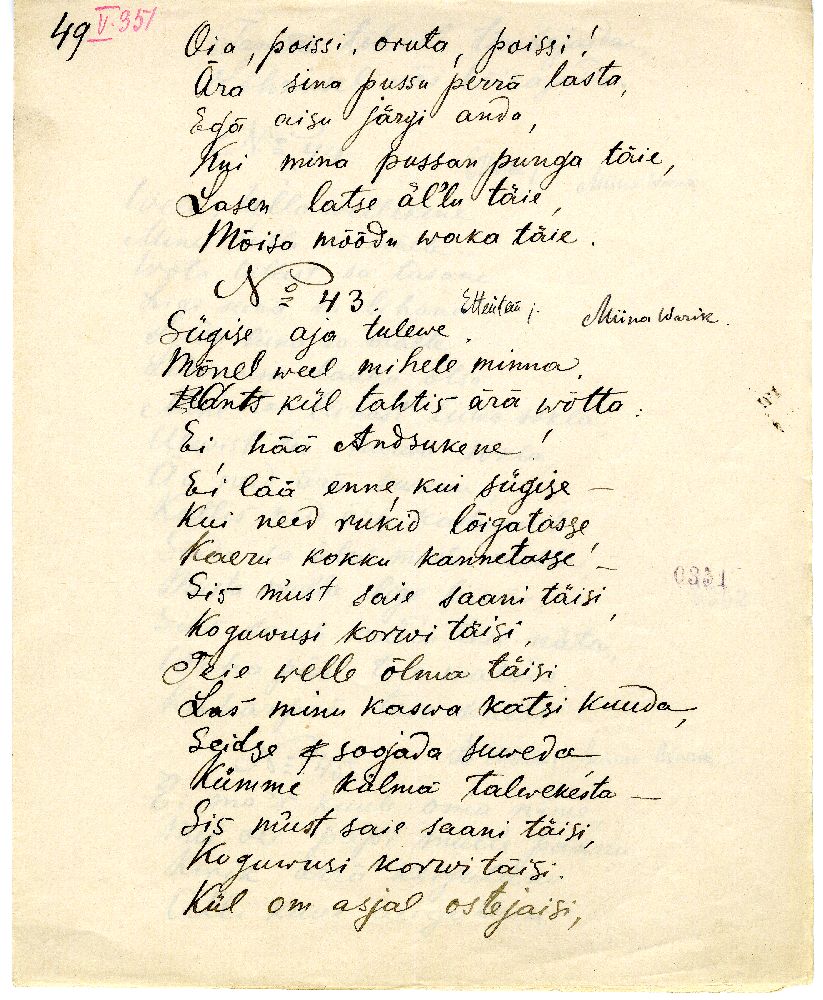 49 V. 351
Oia, poissi, oruta, poissi!
Ära sina pussu perrä lasta,
Egä aisu järgi anda,
Kui mina pussan punga täie,
Lasen latse äl'lu täie,
Mõisa mõõdu waka täie.
No 43. Miina Warik.
Sügise aja tulewe.
Mõnel weel mihele minna.
Ants kül tahtis ärä wõtta:
Ei hää Andsukene!
Ei lää enne, kui sügise –
Kui need rukid lõigatasse,
Kaeru kokku kannetasse! –
Sis must saie saani täisi,
Koguwusi korwi täisi,
Teie welle õlma täisi
Las minu kaswa katsi kuuda,
Seidse soojada suweda
Kümme külmä talwekesta –
Sis must saie saani täisi,
Koguwusi korwi täisi.
Kül om asjal ostejaisi,
0351